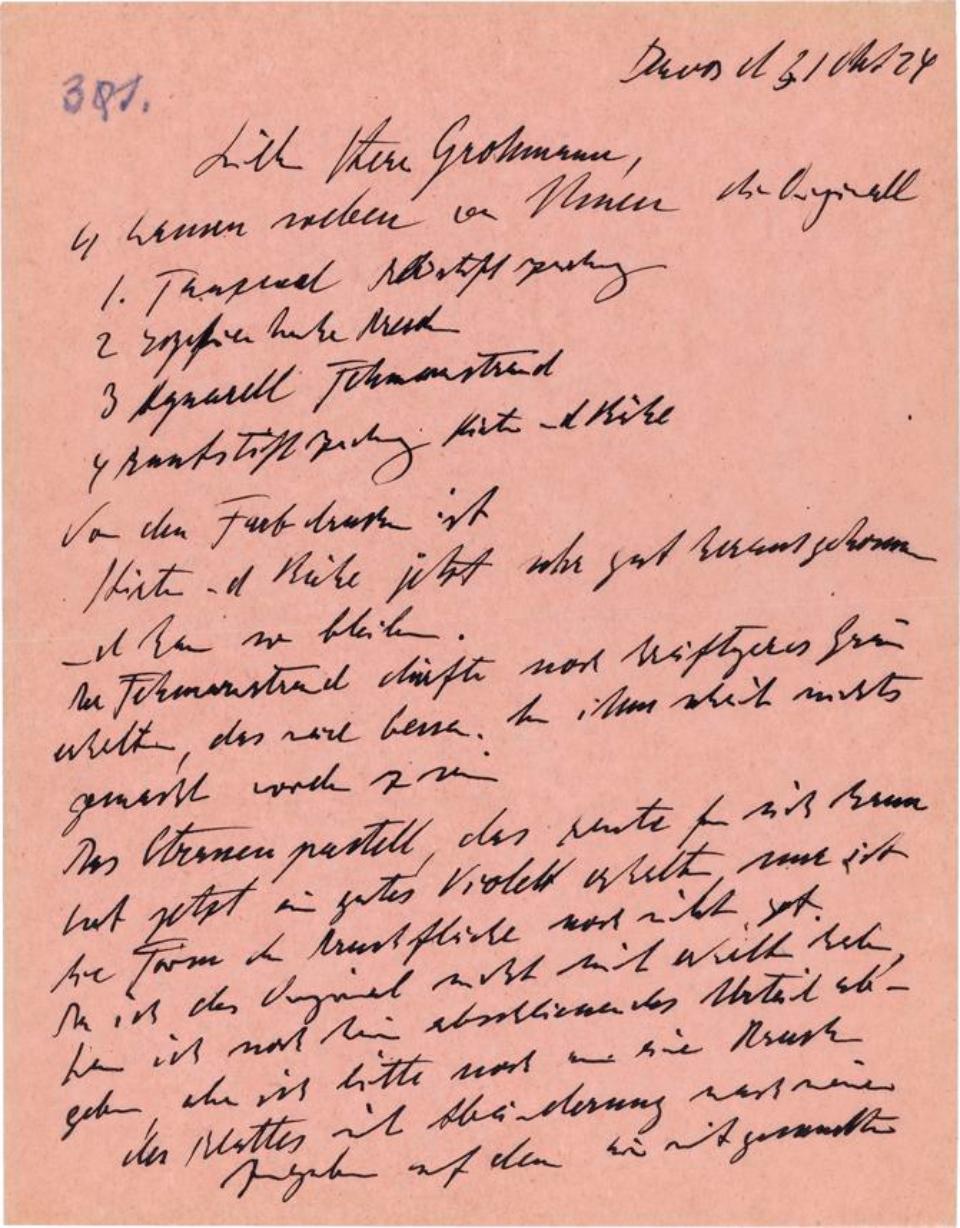 Davos d 31 Okt 24
381.
Lieber Herr Grohmann,
kamen soeben von Ihnen die Originale
1. Tanzpaar Bleistiftzeichng
2 Dresden
3 Aquarell Fehmarnstrand
4 Buntstiftzeichng Hirte und Kühe
Von den Farbdrucken ist
Hirte und Kühe jetzt sehr gut herausgekommen
und kann so bleiben.
Der Fehmarnstrand dürfte noch kräftigeres Grün
erhalten, das wäre besser. An ihm scheint nichts
gemacht worden zu sein
Das Strassenpastell, das
hat jetzt ein gutes Violett erhalten, nur ist
die Form der Druckfläche noch nicht gut.
Da ich das Original nicht mit erhielt
kann ich noch kein abschliessendes Urteil ab-
geben, aber ich bitte noch um eine Druck
des Blattes mit Abänderung nach meinen
Angaben auf dem mitgesandten